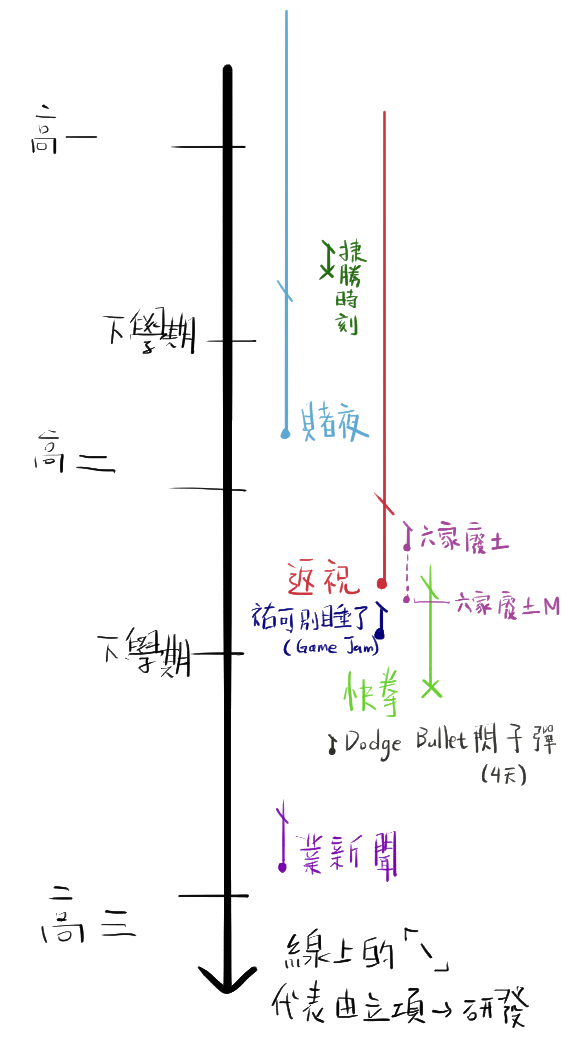 高一
捷勝時刻
下學期
賭夜
高二
六家廢土
返祝
六家廢土M
祐可別睡了
(Game Jam)
下學期
快拳
Dodge Bullet 閃子彈
(4天)
業新聞
高三
線上的「\」
代表由立項→研發